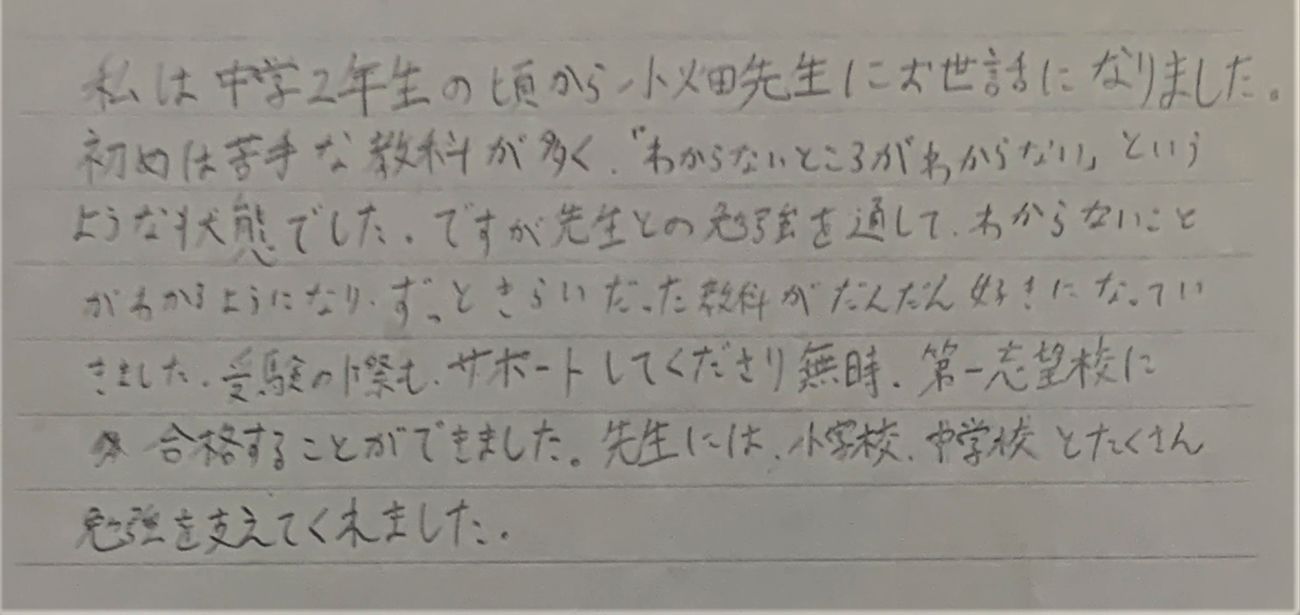 私は中学2年生の頃から小畑先生にお世話になりました。
初めは苦手な教科が多く、“わからないところがわからない」という
ような状態でした。ですが先生との勉強を通して、わからないこと
がわかるようになり、ずっときらいだった教科がだんだん好きになってい
きました。受験の際も、サポートしてくださり無時、第一志望校に
合格することができました。先生には、小学校、中学校とたくさん
勉強を支えてくれました。